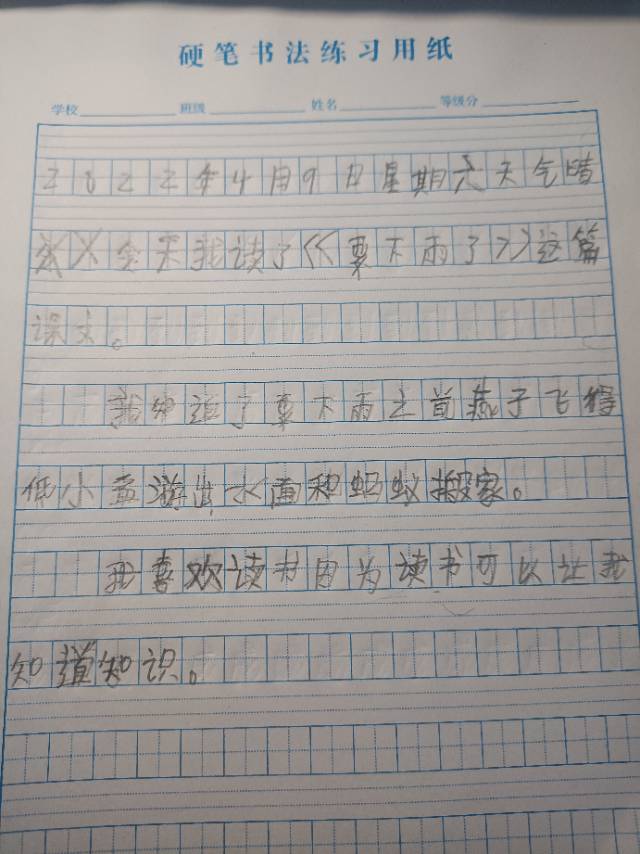 硬笔书法练习用纸
学校 班级 姓名 等级分
2022年4月9日星期六天气晴
今天我读了《要下雨了》这篇
课文。
我知道了要下雨之前燕子飞得
低小鱼游出水面和蚂蚁搬家。
我喜欢读书因为读书可以让我
知道知识。